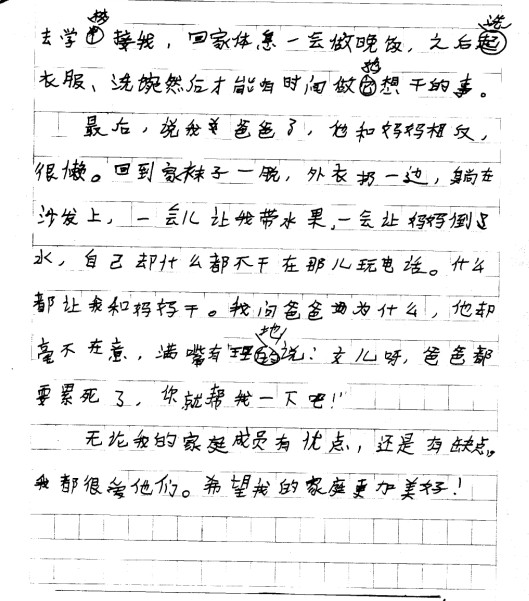 去学校接我，回家体息一会做晚饭，之后洗
衣服、洗碗然后才能有时间做妈想干的事。
最后，说我爸爸了，他和妈妈相反，
很懒。回到家袜子一脱，外衣扔一边，躺在
沙发上，一会儿让我带水果，一会让妈妈倒足
水，自己却什么都不干在那儿玩电话。什么
都让我和妈妈干。我问爸爸为什么，他却
毫不在意，满嘴有理地说：女儿呀，爸爸都
要累死了，你就帮我一下吧！"
无论我的家庭成员有优点，还是有缺点，
我都很爱他们。希望我的家庭更加美好！